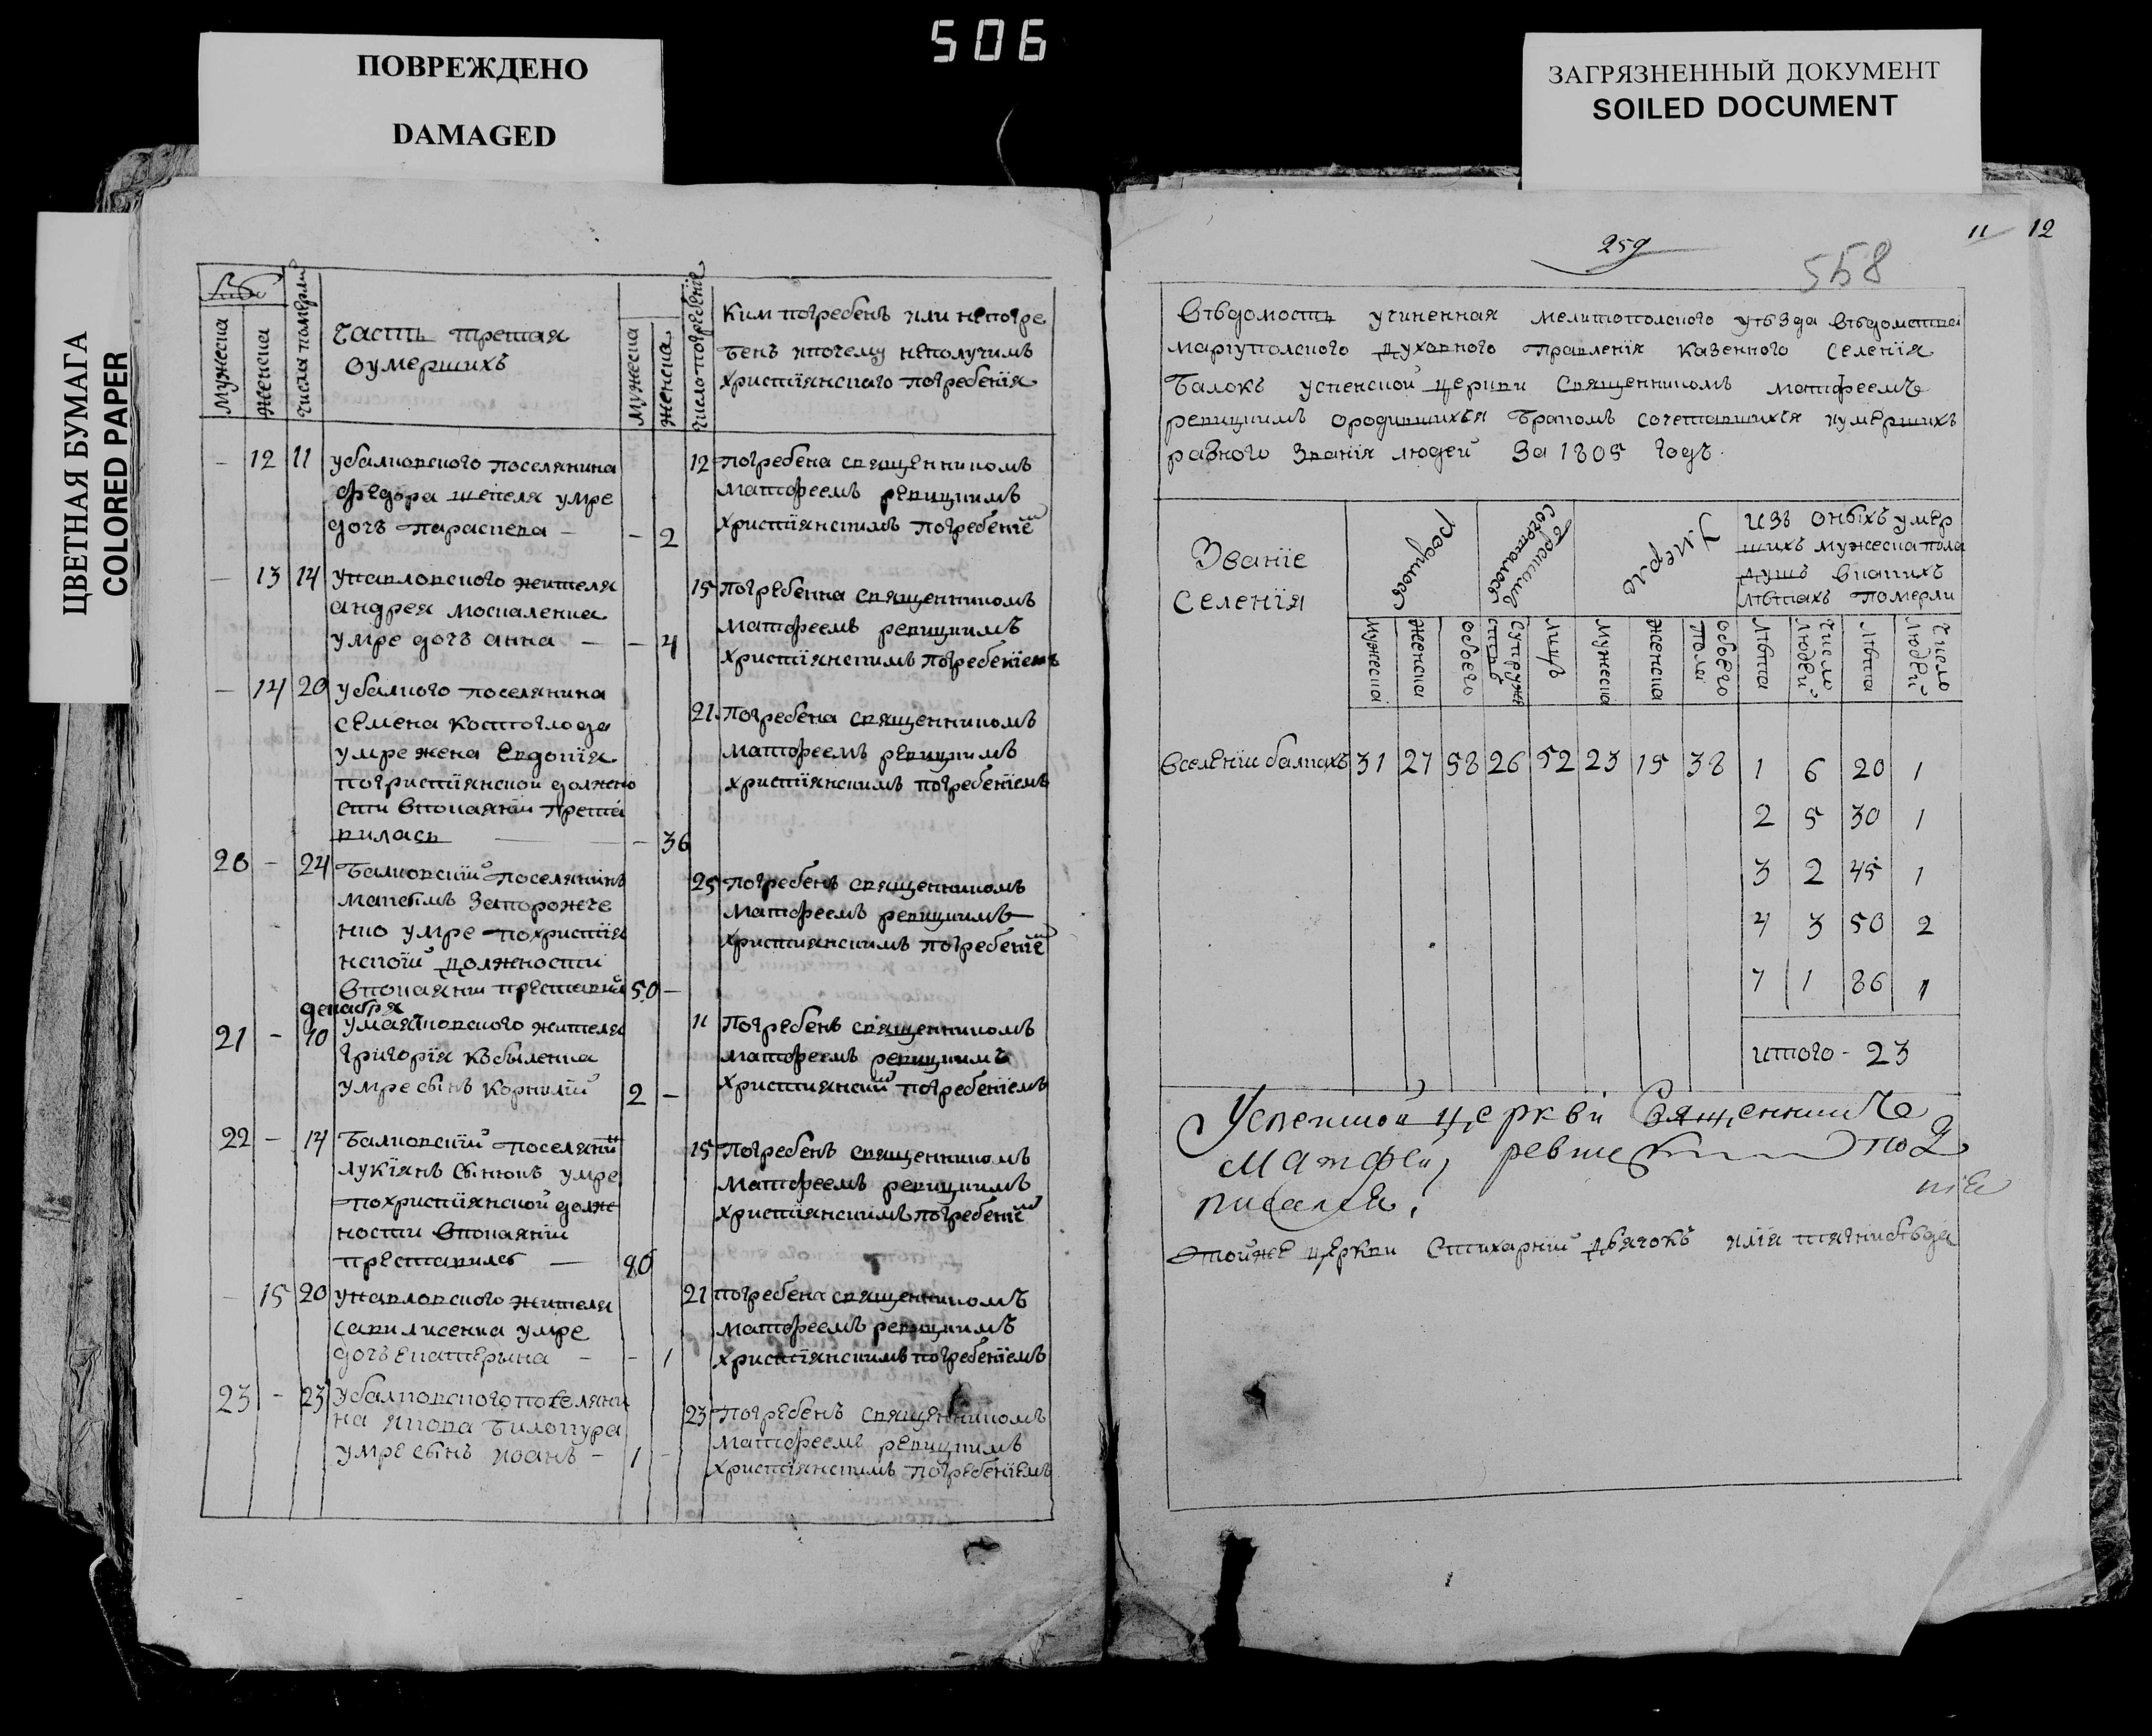 506
ПОВРЕЖДЕНО
DAMAGED
ЗАГРЯЗНЕННЫЙ ДОКУМЕНТ
SOILED DOCUMENT
ЦВЕТНАЯ БУМАГА
COLORED PAPER
мужеска
женска
числа померли
часть третая
оумершихъ
мужеска
женска
число погребенїе
Ким погребенъ или непогре
бенъ ипочему неполучимъ
христїянскаго погребенїя
– 12 11
убалковского поселянина
федора шепеля умре
дочъ параскева –
– 2
12 погребена священникомъ
матфеемъ ревицкимъ
христїянскимъ погребенїем
– 13 14
упавловского жителя
андрея москаленка
умре дочъ анна –
– 4
15 погребенна священникомъ
матфеемъ ревицкимъ
христїянскимъ погребенїемъ
– 14 20
убалкого поселянина
семена костогло да
умре жена Евдокїя
похристїянской должно
сти впокаянїи преста
вилась
– 36
21 погребена священникомъ
матфеемъ ревицкимъ
христїянскимъ погребенїемъ
20 – 24
балковскїй поселянинъ
макѣимъ запорожче
нко умре похристїя
нской должности
впокаянїи преставий
50 –
25 погребенъ священникомъ
матфеемъ ревицкимъ
християнскимъ погребенїем
декабря
21 – 10
умаяковского жителя
григорїя кобыленка
умре сынъ корнилїй
2 –
11 Погребенъ священникомъ
матфеемъ ревицкимъ
християнским погребенїемъ
22 – 14
балковскїй поселянин
лукїянъ умре
похристїянской долж
ности впокаянїи
преставилъ –
15 Погребенъ священникомъ
матфеемъ ревицкимъ
християнскимъ погребенїем
– 15 20
упавловского жителя
сави лисенка умре
дочъ екатерына –
– 1
21 погребена священникомъ
матфеемъ ревицкимъ
христїянскимъ погребенїемъ
23 – 23
убалковского поселяни
на якова билокура
умре сынъ иоанъ –
1 –
23 Погребенъ священникомъ
матфеемъ ревицкимъ
христїянскимъ погребенїемъ
259
11 12
558
Вѣдомость учиненная мелитополского уѣзда вѣдомства
марїуполского духовного правленїя казенного селенїя
балокъ успенской церкви священникомъ матфеемъ
ревицкимъ ородившихъся бракомъ сочетавшихся иумершихъ
разного званїя людей За 1805 годъ.
Званїе
селенїя
родилося
бракимъ сочеталося
умерло
изъ оныхъ умер
шихъ мужеска пола
душъ вкакихъ
лѣтахъ померли
мужеска
женска
обоего
супруже ствъ
лицъ
мужеска
женска
обоего пола
лѣта
число людей
лѣта
число людей
вселенїи балкахъ 31 27 58 26 52 23 15 38 1 6 20 1
2 5 30 1
3 2 45 1
4 3 50 2
7 1 86 1
итого – 23
Успенской церкви Священниче
Матфей
писался
тойже церкви стихарнїй дьячокъ илїя